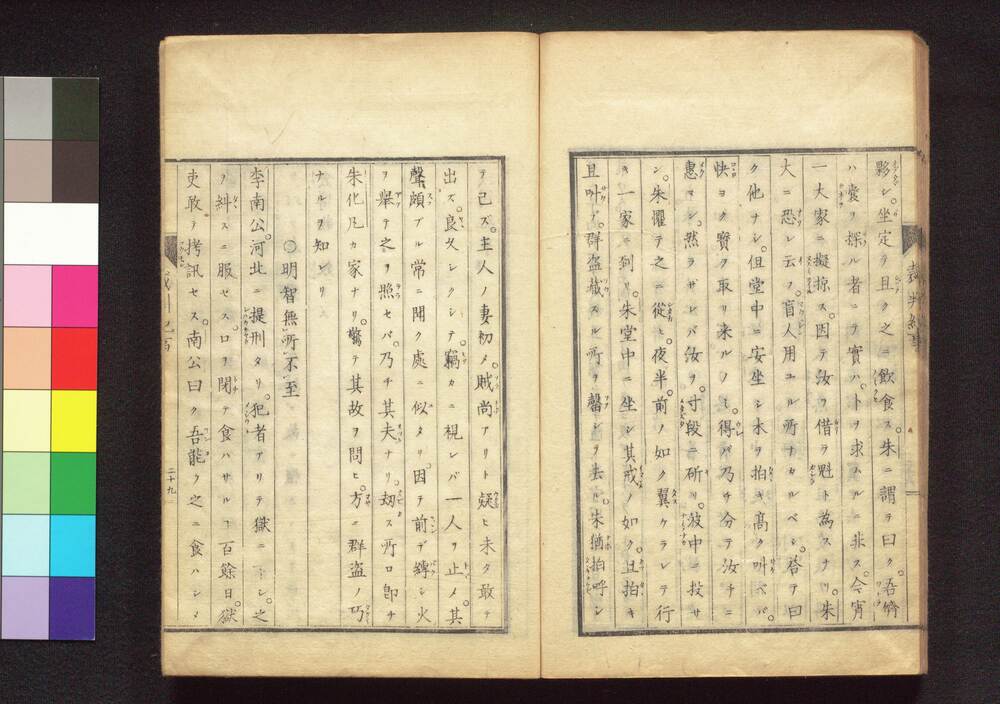 夥シ。坐定ラ且ク之ニ飲食ス。朱ニ謂テ曰ク。吾儕
ハ嚢ヲ探ル者ニテ實ハ。トヲ求ムルニ非ス。今宵
一大家ニ擬掠ス。因テ汝ヲ借ラ魁ト為スナリ。朱
大ニ恐レ云フ。盲人用ユル所ナカルベシ。答テ曰
ク他ナシ。但堂中ニ安坐シ木ヲ拍キ髙ク叫ベバ。
快ヨク寳ヲ取リ来ルノミ。得バ乃チ分テ汝チニ
惠マン。然ラザレバ汝ヲ。寸段ニ斫リ。波中ニ投サ
ン。朱懼テ之ニ從ヒ。夜半前ノ如ク翼ケラレテ行
キ一家ニ到リ。朱堂中ニ坐シ其戒ノ如ク。且拍キ
且叫ブ。群盗藏スル所ヲ罄シヲ去ル。朱猶拍呼シ
テ己ズ。主人ノ妻初メ。賊尚アリト疑ヒ未タ敢テ
出ズ。良久シクシテ。竊カニ視レバ一人ヲ止メ。其
聲頗ブル常ニ聞ク處ニ似タリ。因テ前デ縛シ火
ヲ舉テ之ヲ照セバ。乃チ其夫ナリ。刼ス所ロ卽チ
朱化凡カ家ナリ。驚テ其故ヲ問ヒ。方ニ群盗ノ巧
ナルヲ知レリ
○明智無所不至
李南公。河北ニ提刑タリ。犯者アリテ獄ニ下シ。之
ヲ糾スニ服セス。口ヲ閉テ食ハサル﹁百餘日。獄
吏敢テ拷訊セス。南公曰ク吾能ク之ニ食ハシメ
二十九